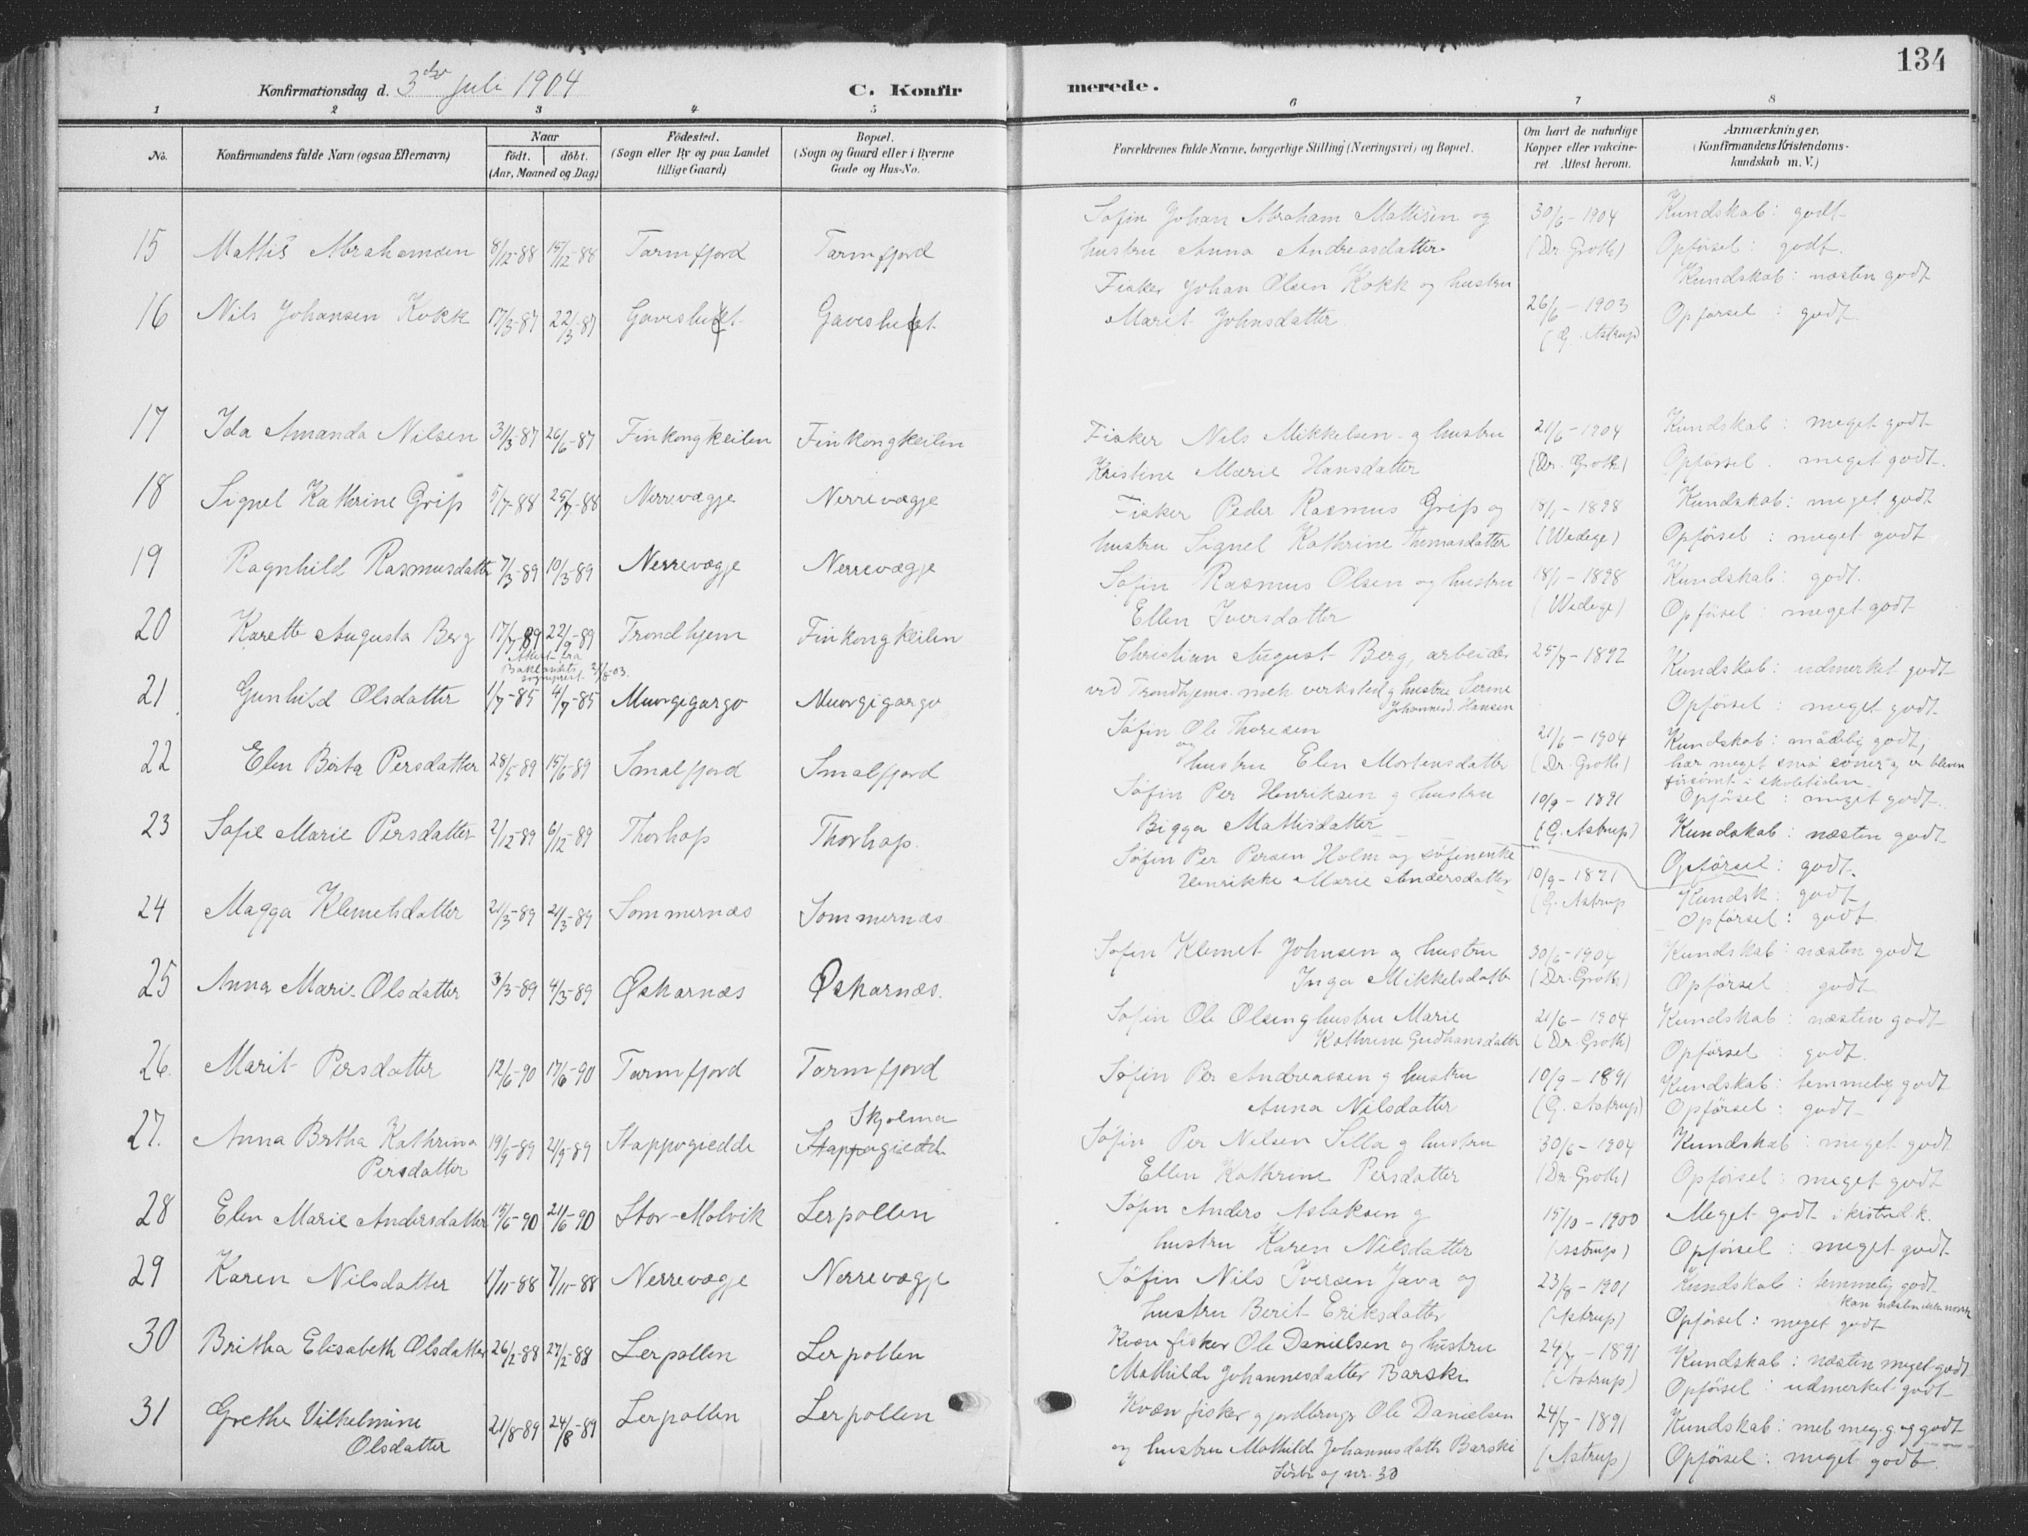 134
Konfirmationsdag d. 3die Juli 1904
C. Konfirmerede.
1 2 3 4 5 6 7 8
No.
Konfirmandens fulde Navn (ogsaa Efternavn)
Naar
født. døbt.
(Aar, Maaned og Dag)
Fødested.
(Sogn eller By og paa Landet
tillige Gaard)
Bopæl.
(Sogn og Gaard eller i Byerne
Gade og Hus-No.
Forældrenes fulde Navne, borgerlige Stilling (Næringsvei) og Bopæl.
Om havt de naturlige
Kopper eller vakcine-
ret. Attest herom.
Anmærkninger.
(Konfirmandens Kristendoms-
kundskab m. V.)
15 Mattis Abrahamsen 8/12-88 15/12-88 Tarmfjord Tarmfjord
Søfin Johan Abraham Mattisen og 30/6-1904 Kundskab: godt
hustru Anna Andreasdatter (Dr. Groth) Opførsel: godt.
16 Nils Johansen Kokk 17/3-87 22/3-87
Fisker Johan Olsen Kokk og hustru Kundskab: næsten godt
Marit Johnsdatter 26/6-1903 Opførsel: godt.
(G. Astrup)
17 Ida Amanda Nilsen 31/3-87 26/6-87 Finkongkeilen Finkongkeilen
Fisker Nils Mikkelsen g hustru 21/6-1904 Kundskab: meget godt
Kristine Marie Hansdatter (Dr. Groth) Opførsel: meget godt.
18 Signel Kathrine Grip 5/7-88 25/7-88 Nerrevægje Nerrevægje
Fisker Peder Rasmus Grip og 18/1-1898 Kundskab: meget godt
hustru Signel Kathrine Thomasdatter (Wedege) Opførsel: meget godt
19 Ragnhild Rasmusdatte 7/3-89 10/3-89 Nerrevægje Nerrevægje
Søfin Rasmus Olsen og hustru 18/1-1898 Kundskab: godt.
Ellen Iversdatter (Wedege) Opførsel: meget godt
20 Karette Augusta Berg 17/7-89 22/9-89 Trondhjem Finkongkeilen
Attest fra
Baklandets
sognepræst
Christian August Berg, arbeider 25/7-1892 Kundskab: udmerket godt
ved Trondhjems mek verksted g hustru Opførsel: meget godt
Johannesd. Hansen
21 Gunhild Olsdatter 1/7-85 4/7-85 Muorgigargo Muorgigargo
Søfin Ole Thoresen 21/6-1904 Kundskab: mådelig godt,
og hustru Elen Mortensdatter (Dr. Groth) har meget små evner g er bleven
forsømt i skoletiden.
Opførsel: meget godt.
22 Elen Berta Persdatter 28/5-89 15/6-89 Smalfjord Smalfjord
Søfin Per Henriksen g hustru 10/9-1891 Kundskab: næsten godt
Bigga Mattisdatter (G. Astrup) Opførsel: godt.
23 Sofie Marie Persdatter 2/12-89 6/12-89 Thorhop Thorhop.
Søfin Per Persen Holm og søfinenke 10/9-1891 Kundsk: godt
Henrikke Marie Andersdatter (G. Astrup Opførsel: godt
24 Magga Klemetsdatter 21/3-89 21/3-89 Sommernæs Sommernæs
Søfin Klemet Johnsen og hustru 30/6-1904 Kundskab: næsten godt
Inga Mikkelsdatte (Dr. Groth) Opførsel: godt
25 Anna Marie Olsdatter 3/3-89 4/3-89 Øskarnæs Øskarnæs.
Søfin Ole Olsen g hustru Marie 21/6-1904 Kundskab: næsten godt
Kathrine Gudhansdatter (Dr. Groth) Opførsel: godt.
26. Marit Persdatter 12/6-90 17/6-90 Tarmfjord Tarmfjord
Søfin Per Andreassen g hustru 10/9-1891 Kundskab: temmelig godt
Anna Nilsdatter (G. Astrup) Opførsel: godt
27. Anna Brtha Kathrina 19/5-89 21/9-89 Stappogiedde Skjolma
Persdatter Stappogiedde
Søfin Per Nilsen Silla g hustru 30/6-1904 Kundskab: meget godt
Ellen Kathrine Persdatter (Dr. Groth) Opførsel: meget godt
28 Elen Marie Andersdatter 15/6-90 21/6-90 Stor-Molvik Lerpollen
Søfin Anders Aslaksen g 15/10-1900 Meget godt i kristnd.k.
hustru Karen Nilsdatter (Astrup) Opførsel: meget godt
29 Karen Nilsdatter 1/11-88 7/11-88 Nerrevægje Nerrevægje
Søfin Nils Iversen Java og 23/8-1901 Kundskab: temmelig godt
kan næsten ikke norsk
hustru Berit Eriksdatter (Astrup) Opførsel: meget godt
30 Britha Elisabeth Olsdatter 26/2-88 27/2-88 Lerpollen Lerpollen
Kvæn fisker Ole Danielsen og hustru 24/7-1891 Kundskab: næsten meget godt
Mathilde Johannesdatter Barski (Astrup) Opførsel: udmerket godt
31 Grethe Vilhelmine 21/8-89 24/8-89 Lerpollen Lerpollen
Olsdatter
Kvæn fisker g jordbruger Ole Danielsen 24/7-1891 Kundskab: mel meg. g og godt
og hustru Mathilde Johannesdatte Barski (Astrup) Opførsel: meget godt.
af nr. 30